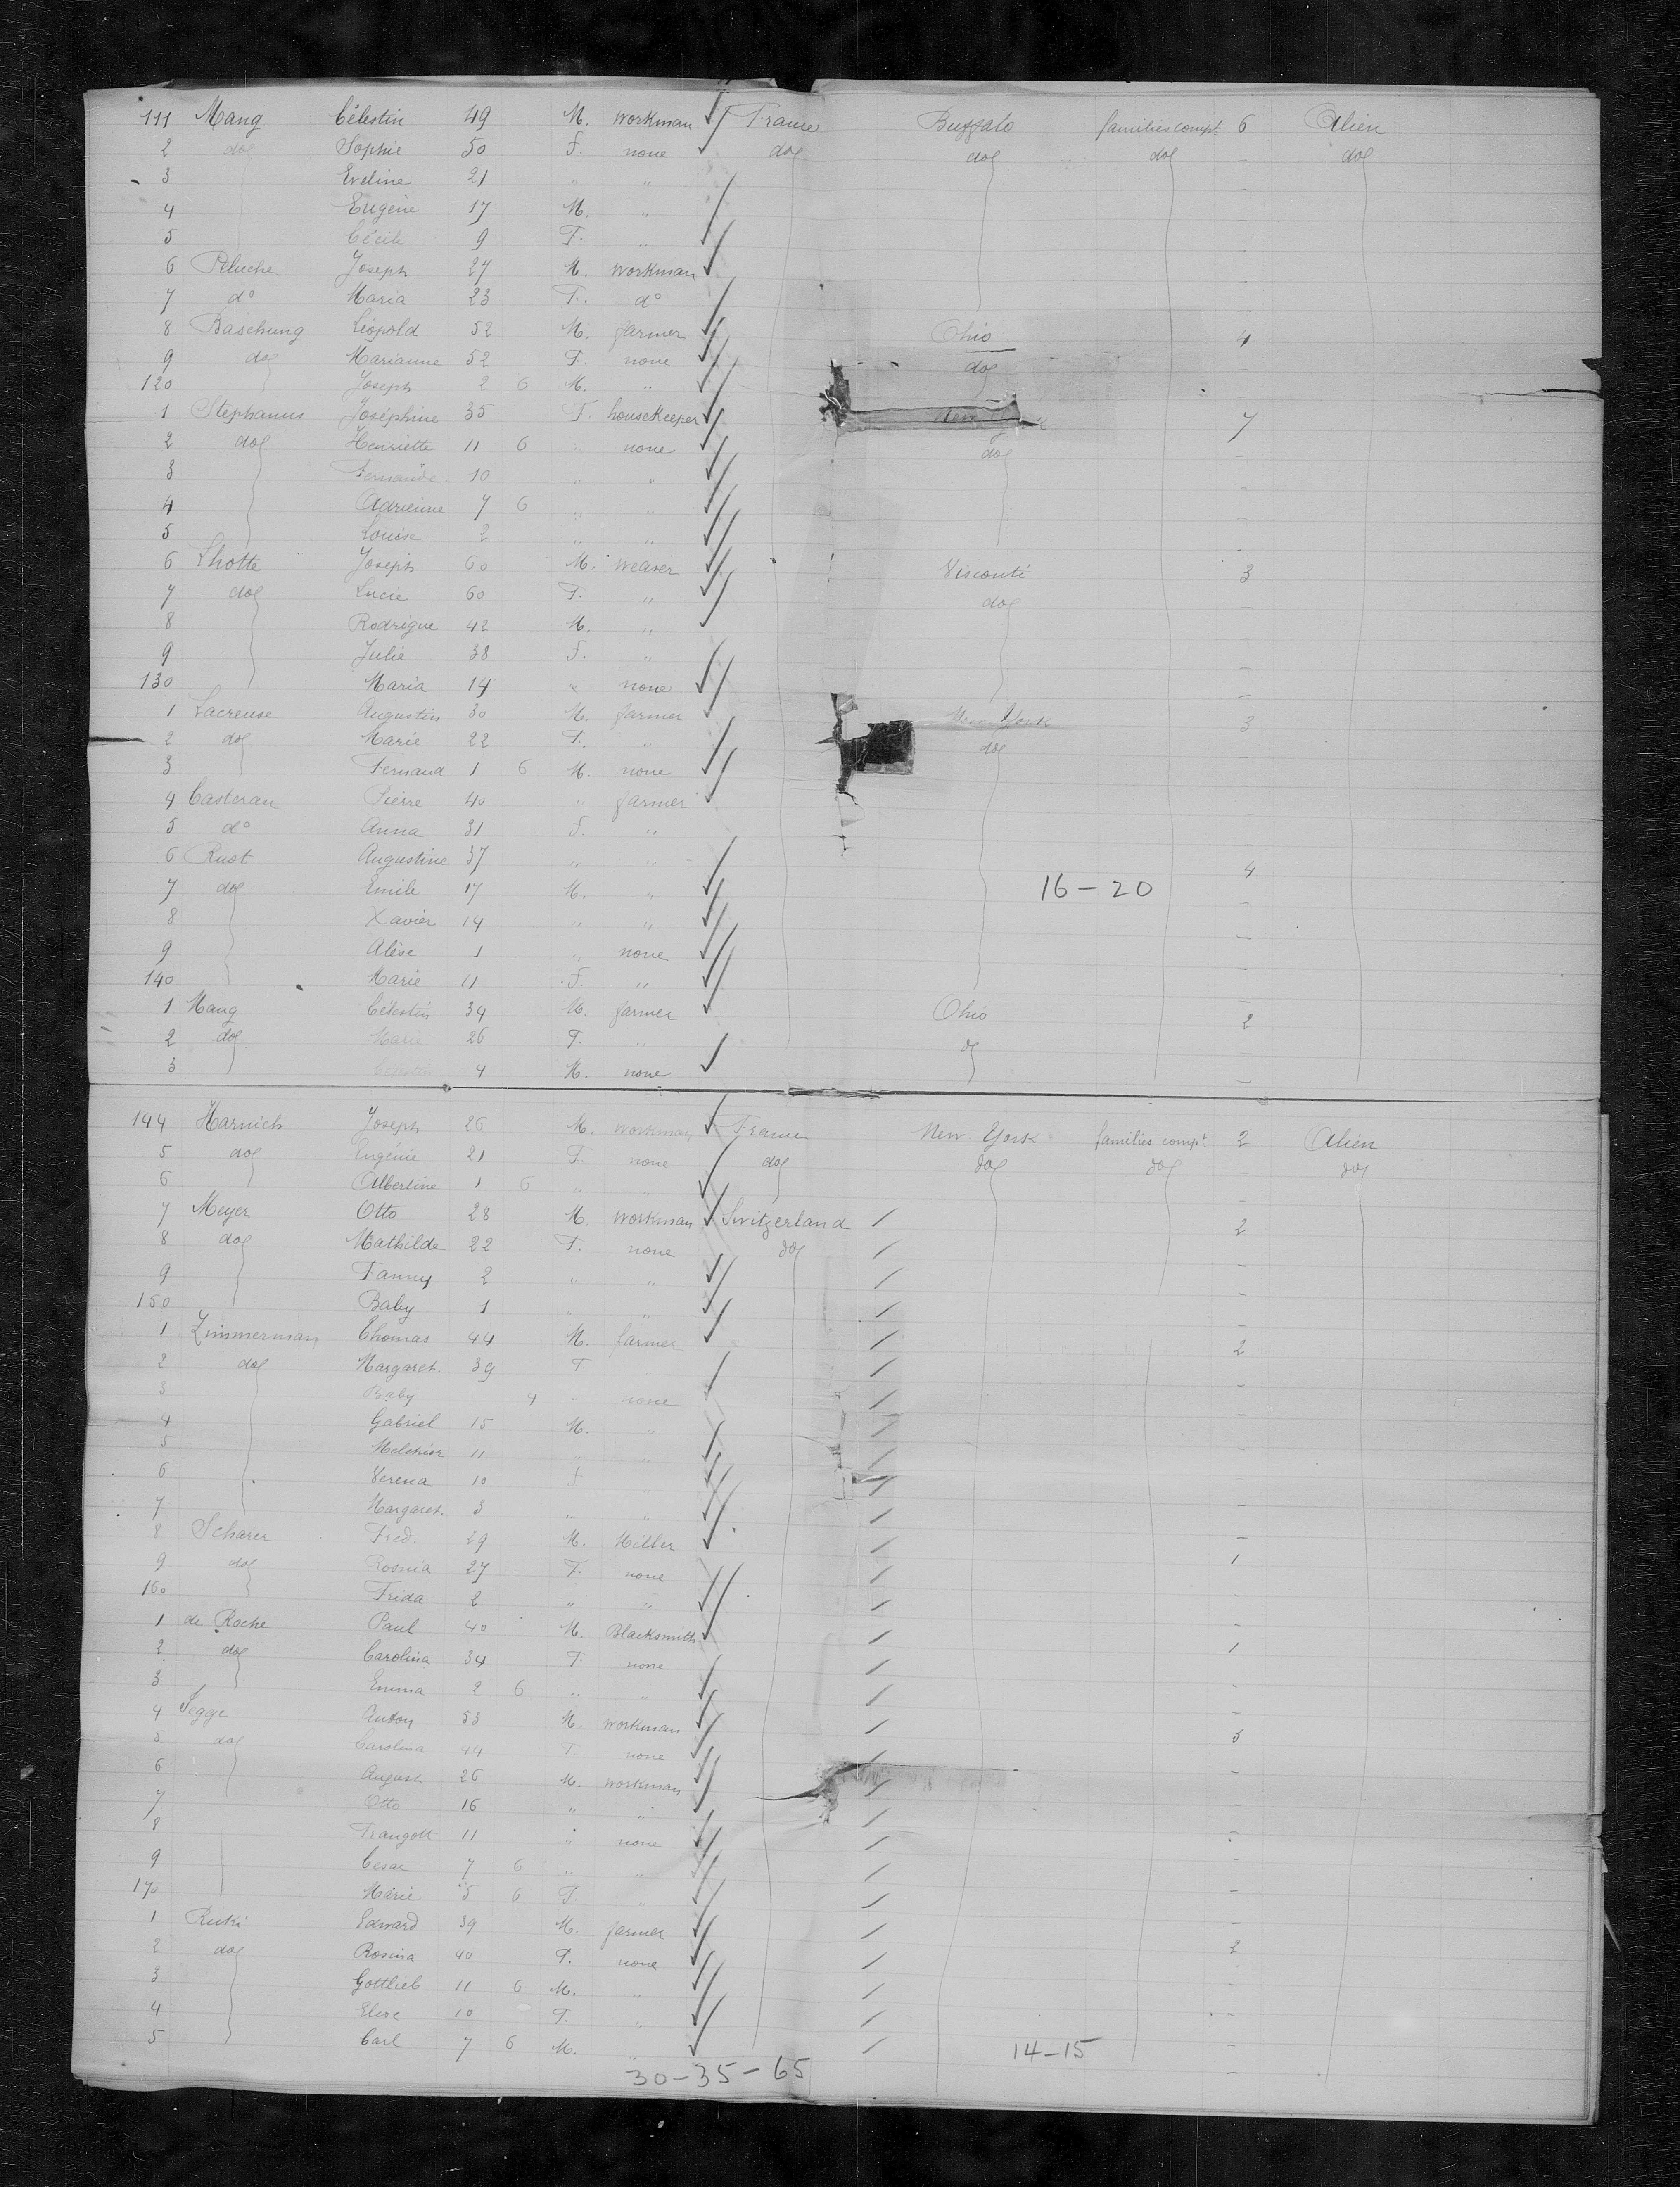 111 Mang Célestin 49 M. workman France Buffalo families compt. 6 Alien
2 do Sophie 50 F. none do do do - do
3 Eveline 21 " " -
4 Eugène 17 M. " -
5 Cécile 9 F. " -
6 Peluche Joseph 27 M. workman -
7 d° Maria 23 F. d° -
8 Baschung Léopold 52 M. farmer Ohio 4
9 do Marianne 52 F. none do
120 Joseph 2 6 M. "
1 Stephanus Joséphine 35 F. housekeeper New 7
2 do Henriette 11 6 " none do -
3 Fernande 10 " " -
4 Adrienne 7 6 " " -
5 Louise 2 " " -
6 Lhotte Joseph 60 M. weaver Visconti 3
7 do Lucie 60 F. " do -
8 Rodrigue 42 M. " -
9 Julie 38 F. " -
130 Maria 14 " none -
1 Lacreuse Augustin 30 M. farmer New York 3
2 do Marie 22 F. " do -
3 Fernand 1 6 M. none -
4 Casteran Pierre 40 " farmer -
5 d° Anna 31 F. " -
6 Rust Augustine 37 " " 4
7 do Emile 17 M. " 16-20 -
8 Xavier 14 " " -
9 1 " none -
140 Marie 11 F. " -
1 Mang Célestin 34 M. farmer Ohio 2
2 do Marie 26 F. " do -
3 Célestin 4 M. none -
144 Harnich Joseph 26 M. workman France New York families compt 2 Alien
5 do Eugénie 21 F. none do do do - do
6 Albertine 1 6 " " -
7 Meyer Otto 28 M. workman Switzerland / 2
8 do Mathilde 22 F. none do / -
9 Fanny 2 " " / -
150 Baby 1 " " / -
1 Zimmerman Thomas 44 M. farmer / 2
2 do Margaret. 39 F / -
3 Baby 4 " none / -
4 Gabriel 15 M. " / -
5 Melchior 11 " " / -
6 Verena 10 f " / -
7 Margaret. 3 " " / -
8 Scharer Fred. 29 M. Miller / 1
9 do Rosina 27 F. none / -
160 Frida 2 " " / -
1 de Roche Paul 40 M. Blacksmith / 1
2 do Carolina 34 F. none / -
3 Emma 2 6 " " / -
4 Segge Anton 53 M. workman / 3
5 do Carolina 44 F none / -
6 August 26 M. workman / -
7 Otto 16 " " / -
8 Traugott 11 " none / -
9 Cesar 7 6 " " / -
170 Marie 5 6 F. " / -
1 Rutti Edward 39 M. farmer / 2
2 do Rosina 40 F. none /
3 Gottlieb 11 6 M. " / -
4 Elise 10 F. " / -
5 Carl 7 6 M. " / 14-15 -
30-35-65